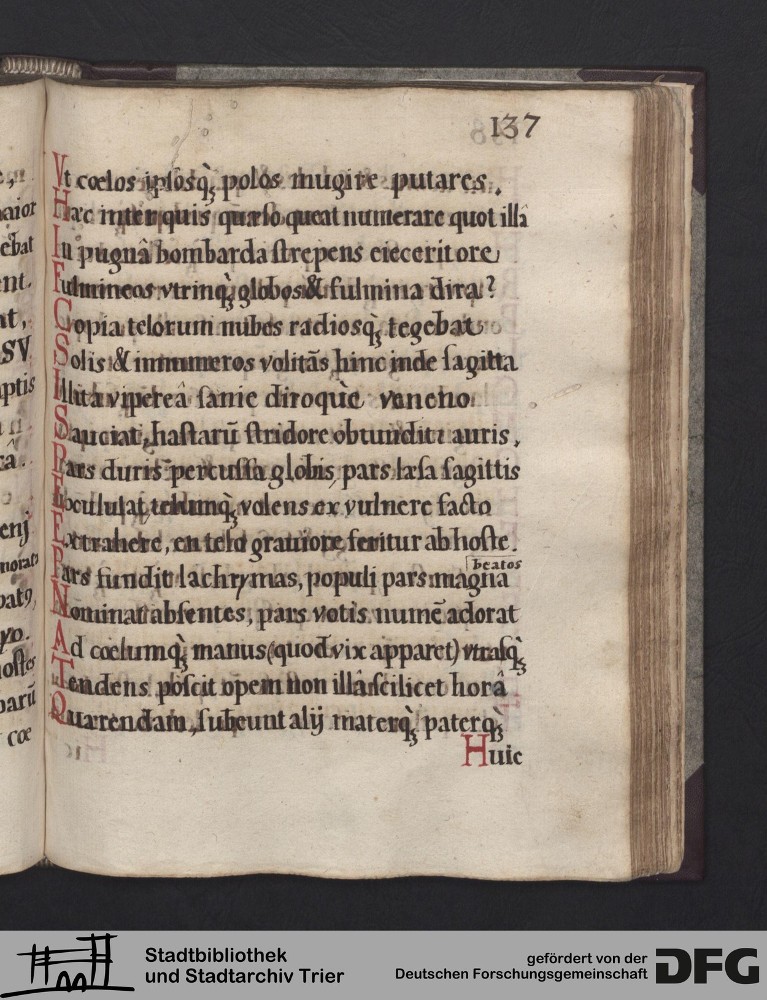 137
Vt cœlos ipsosq̀ꝫ polos mugire putares.
Hæc inter quis quæso queat numerare quot illâ
In pugnâ bombarda strepens eiecerit ore
Fulmineos vtrinq̀ꝫ globos & fulmina dira?
Copia telorum nubes radiosq̀ꝫ tegebat
Solis & innumeros volitãs hinc inde sagitta
Illita vipereâ sanie diroquè veneno
Sauciat, hastarũ stridore obtundit: auris,
Pars duris percussa globis, pars læsa sagittis
eiululat, telumq̀ꝫ volens ex vulnere facto
Extrahere, en telo grauiore feritur ab hoste.
beatos
Pars fundit lachrymas, populi pars magna
Nominat absentes, pars votis numẽ adorat
Ad cœlumq̀ꝫ manus (quod vix apparet) vtrasq̀ꝫ
Tendens poscit opem non illâ scilicet horâ
Quærendam, subeunt alij materq̀ꝫ paterq̀ꝫ
Huic
Stadtbibliothek
und Stadtarchiv Trier
gefördert von der
Deutschen Forschungsgemeinschaft
DFG